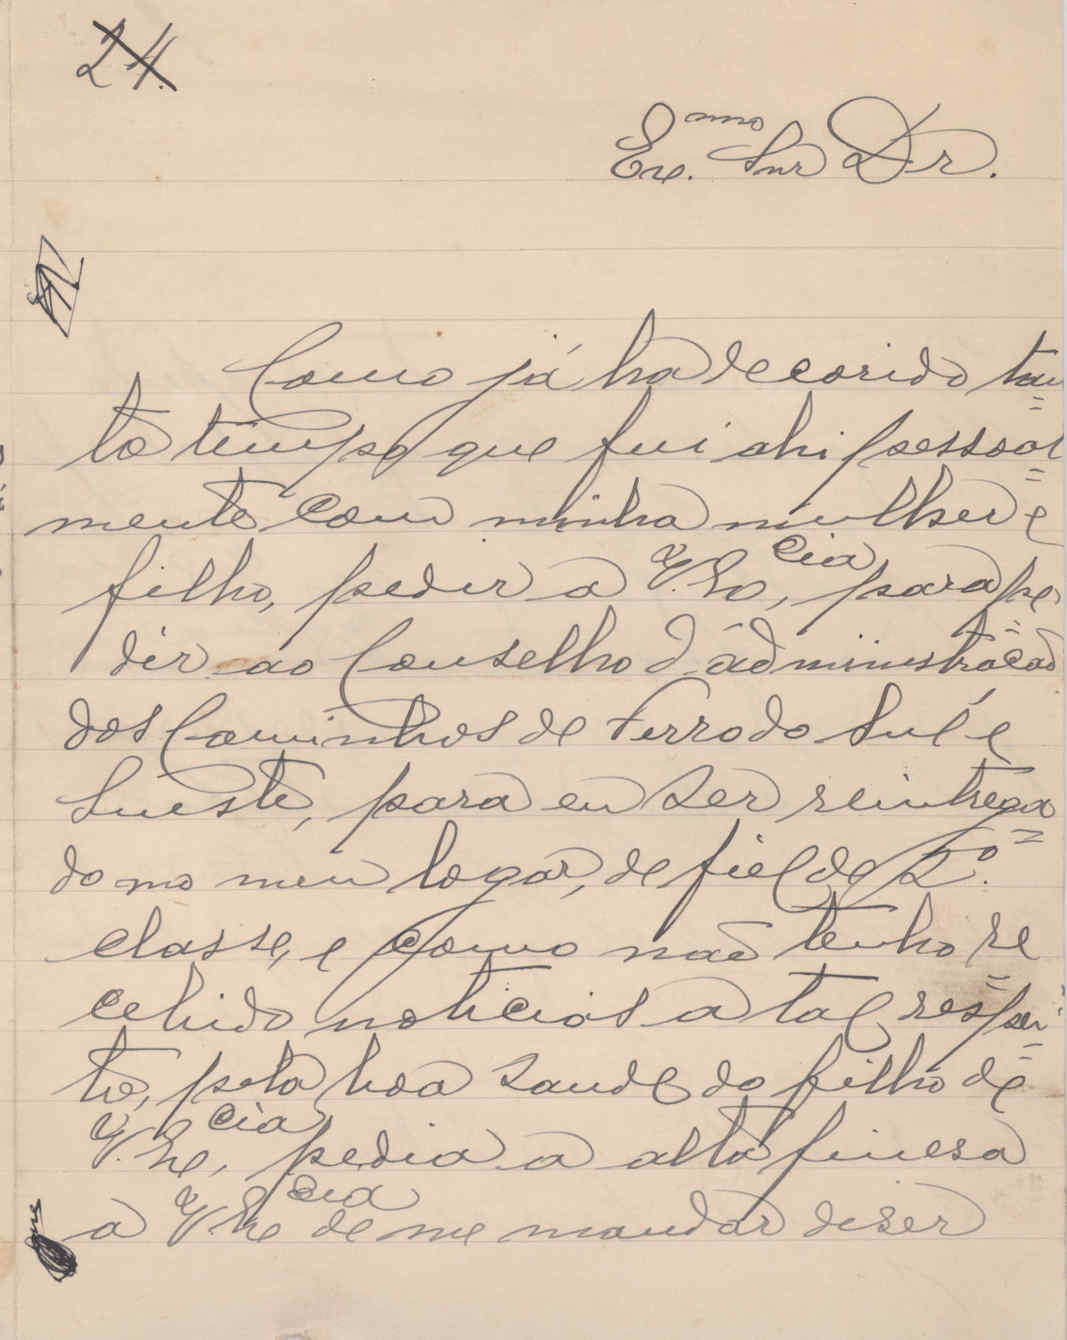 24.
Ex.mo Snr Dr.
Como já ha decorido tan
to tempo que fui ahi pessoal
mente com minha mulher e
filho, pedir a V. Ex.cia, para pe
dir ao Conselho d'administração
dos Caminhos de Ferro do Sul e
Sueste, para eu ser reintrega
do no meu logar, de fiel de 2.º
classe, e como não tenho re
cebido noticias a tal respei
to, pela boa saude do filho de
V. Ex.cia, pedia a alta finesa
a V. Ex.cia de me mandar diser